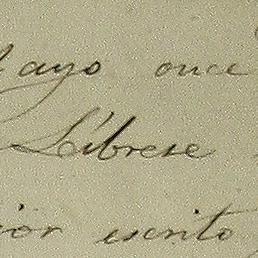 Mayo once
Líbrese
ior escrito